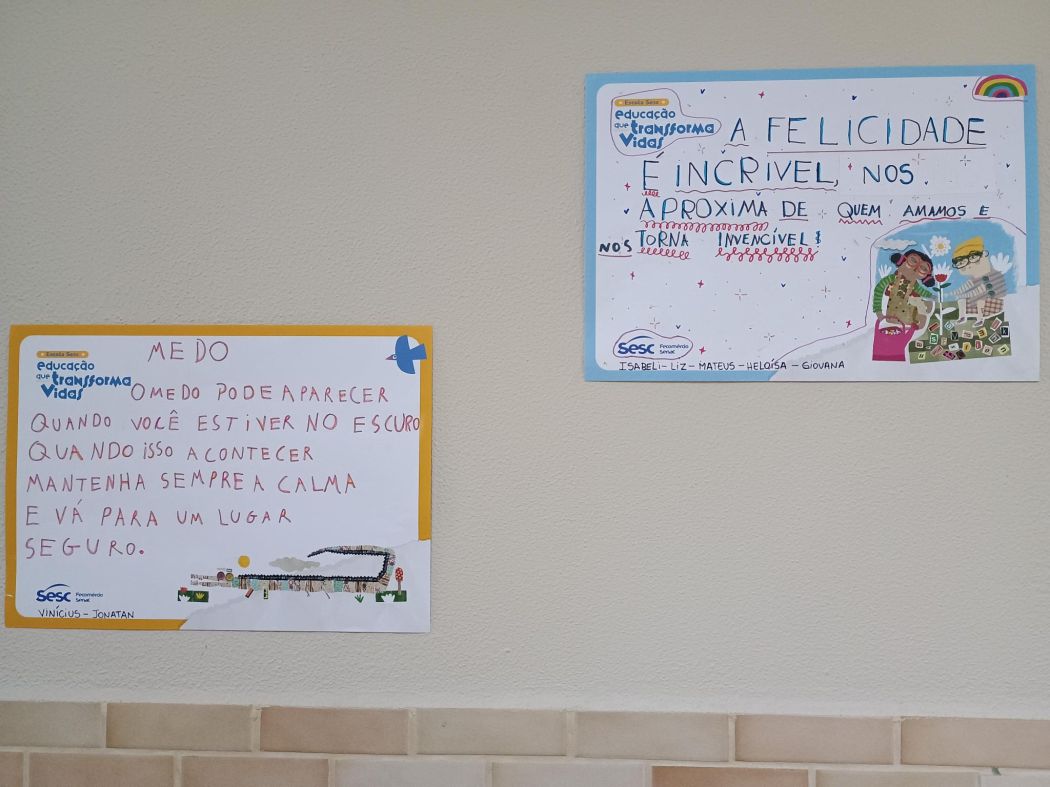 Escola Sesc
educação
que transforma
Vidas
MEDO
O MEDO PODE APARECER
QUANDO VOCÊ ESTIVER NO ESCURO
QUANDO ISSO ACONTECER
MANTENHA SEMPRE A CALMA
E VÁ PARA UM LUGAR
SEGURO.
Sesc Fecomércio
Senac
VINÍCIUS - JONATAN
Escola Sesc
educação
que transforma
Vidas
A FELICIDADE
É INCRIVEL, NOS
APROXIMA DE QUEM AMAMOS E
NOS TORNA INVENCÍVEL!
Sesc Fecomércio
Senac
ISABELI - LIZ - MATEUS - HELOÍSA - GIOVANA